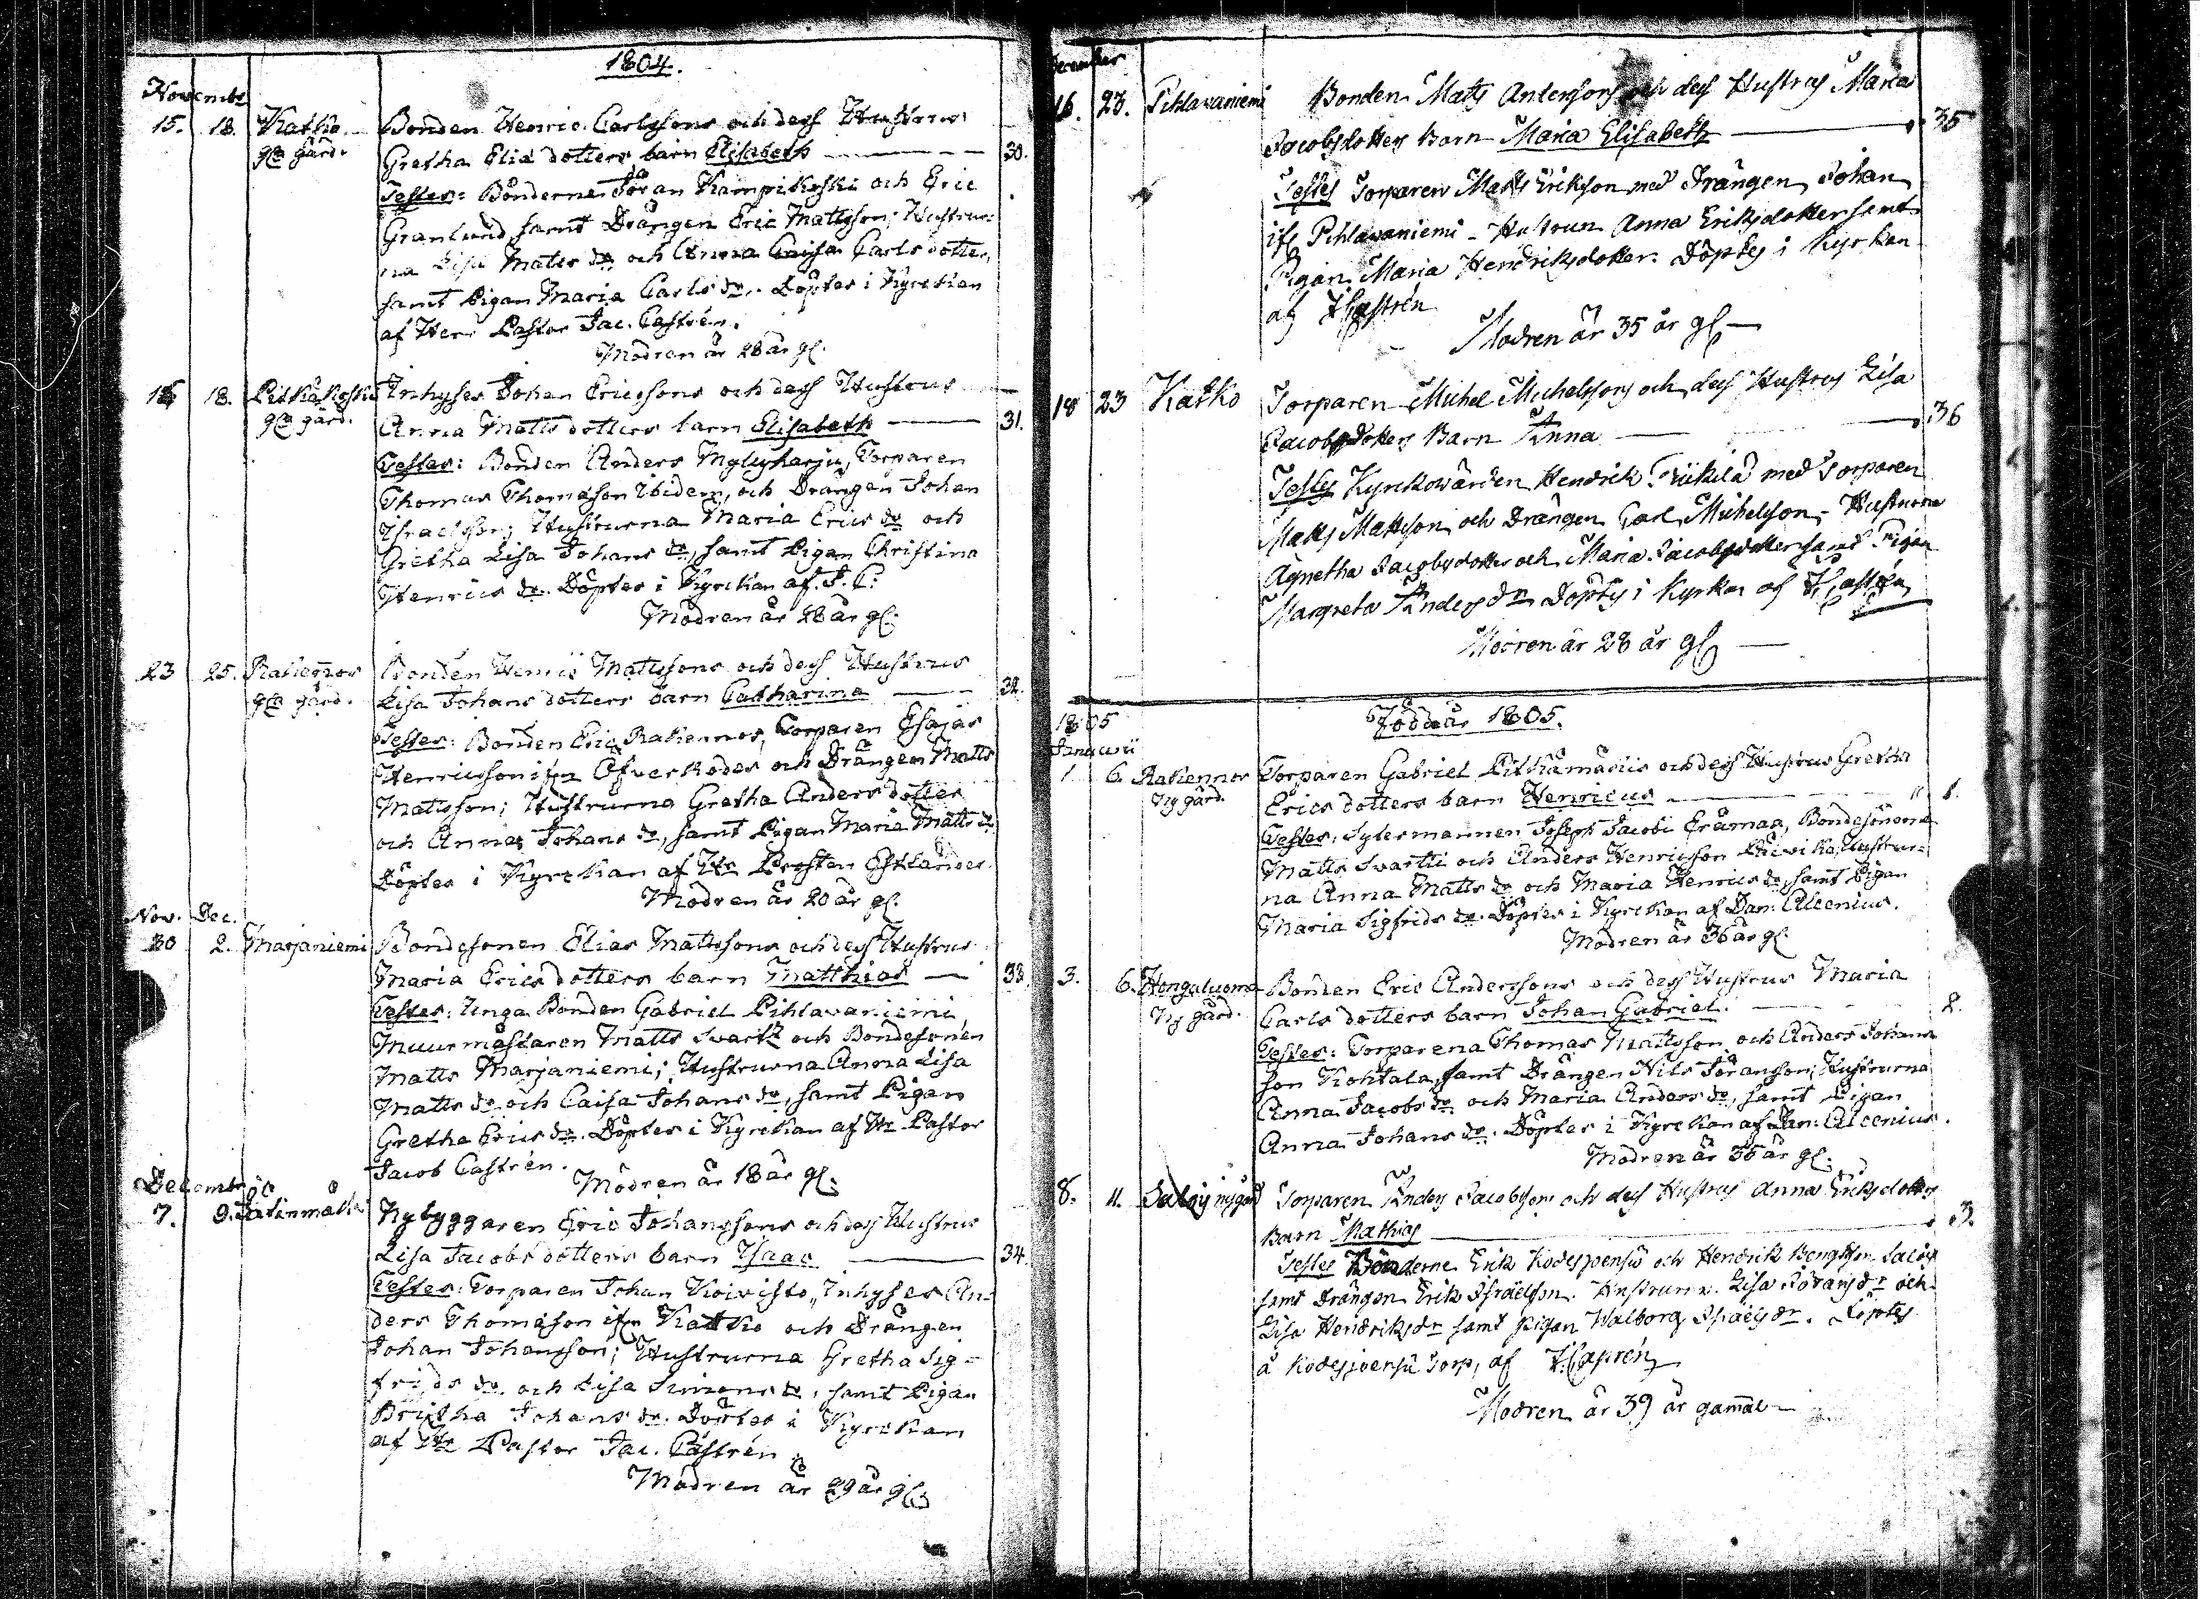 1804.
November
15. 18. Katko
gla gård.
Bonden Henric Carlssons och dess Hustrus
Gretha Eliæ dotters barn Elisabeth — 30.
Testes: Bönderne Jöran Kampikoski och Eric
Granlund samt Drängen Eric Mattsson; Hustrur=
na Lisa Matts dr och Anna Caisa Carls dotter,
samt Pigan Maria Carls dr. Döptes i Kyrckan
af Herr Pastor Jac. Castrén.
Modren är 28 år gl.
16 18. Pitkäkoski
gla gård.
Inhyses Johan Ericssons och dess Hustrus
Anna Matts dotters barn Elisabeth — 31.
Testes: Bonden Anders Myllyharju, Torparen
Thomas Thomasson ibidem, och Drängen Johan
Israelsson; Hustrurna Maria Erics dr och
Gretha Lisa Johans dr, samt Pigan Christina
Henrics dr. Döptes i Kyrckan af J. C.
Modren är 28 år gl.
23 25. Rahennos
gla gård.
Bonden Henric Mattssons och dess Hustrus
Lisa Johans dotters barn Catharina — 32.
Testes: Bonden Eric Rahennos, Torparen Esajas
Henricsson ifrn Öfverkodes och Drängen Matts
Mattsson; Hustrurna Gretha Anders dotter
och Anna Johans dr, samt Pigan Maria Matts dr
Döptes i Kyrckan af Hr Prosten Estlander.
Modren är 20 år gl.
Nov. Dec.
30 2. Marjaniemi
Bondesonen Elias Mattssons och dess Hustrus
Maria Erics dotters barn Matthias — 33.
Testes: Unga Bonden Gabriel Pihlavaniemi
Muurmästaren Matts Svartz och Bondesonen
Matts Marjaniemi; Hustrurna Anna Lisa
Matts dr och Caisa Johans dr, samt Pigan
Gretha Erics dr. Döptes i Kyrckan af Hr Pastor
Jacob Castrén.
Modren är 18 år gl.
December
7. 9.
Nybyggaren Eric Johanssons och dess Hustrus
Lisa Jacobs dotters barn Isaac — 34.
Testes: Torparen Johan Koivisto, Inhyses An=
ders Thomasson ifrn Katko och Drängen
Johan Johansson; Hustrurna Gretha Sig=
frids dr och Lisa Simons dr, samt Pigan
Britha Johans dr. Döptes i Kyrckan
af Hr Pastor Jac. Castrén
Modren är 29 år gl.
December
16. 23. Pihlavaniemi
Bonden Matts Anderssons och dess Hustrus Maria
Jacobsdotters Barn Maria Elisabeth — 35
Testes Torparen Matts Erikson med Drängen Johan
ifr Pihlavaniemi - Hustrun Anna Eriksdotter samt
Pigan Maria Hendriksdotter. Döptes i Kyrkan
af J Castrén
Modren är 35 år gl —
18 23 Katko
Torparen Michel Michelssons och dess Hustrus Lisa
Jacobsdotters Barn Anna — 36
Testes Kyrckowärden Hendrik med Torparen
Matts Mattson och Drängen Carl Michelson, Hustrurna
Agnetha Jacobsdotter och Maria Jacobsdotter samt Pigan
Margreta Anders dr Döptes i Kyrkan af J Castrén
Modren är 28 år gl —
Födde år 1805.
1805
Januarii
1. 6. Rahennos
Ny gård.
Torparen Gabriel Pitkämäkis och dess Hustrus Gretha
Erics dotters barn Henricus — 1.
Testes: Sytermannen Joseph Jacobi Erämaa, Bondesönerna
Matts Svartti och Anders Henricsson Hustrur=
na Anna Matts dr och Maria Henrics dr, samt Pigan
Maria Sigfrids dr. Döptes i Kyrckan af Dan: Alcenius.
Modren är 36 år gl.
3. 6. Hongaluoma
Ny gård.
Bonden Eric Anderssons och dess Hustrus Maria
Carls dotters barn Johan Gabriel. — 2.
Testes: Torparena Thomas Mattsson och Anders Johans
son Kohtala, samt Drängen Nils Jöransson; Hustrurna
Anna Jacobs dr och Maria Anders dr, samt Pigan
Anna Johans dr. Döptes i Kyrckan af Dan: Alcenius.
Modren är 35 år gl.
8. 11. nygård
Torparen Anders Jacobssons och dess Hustrus Anna Eriksdotters
Barn Mathias — 3.
Testes Bönderne Erik Kodesjoensu och Hendrik Bengtson
samt Drängen Erik Israelson. Hustrurna Lisa Jöransdr och
Lisa Hendriksdr samt pigan Walborg Israelsdr. Döptes
å Kodesjoensu Torp, af J. Castrén
Modren är 39 år gammal —